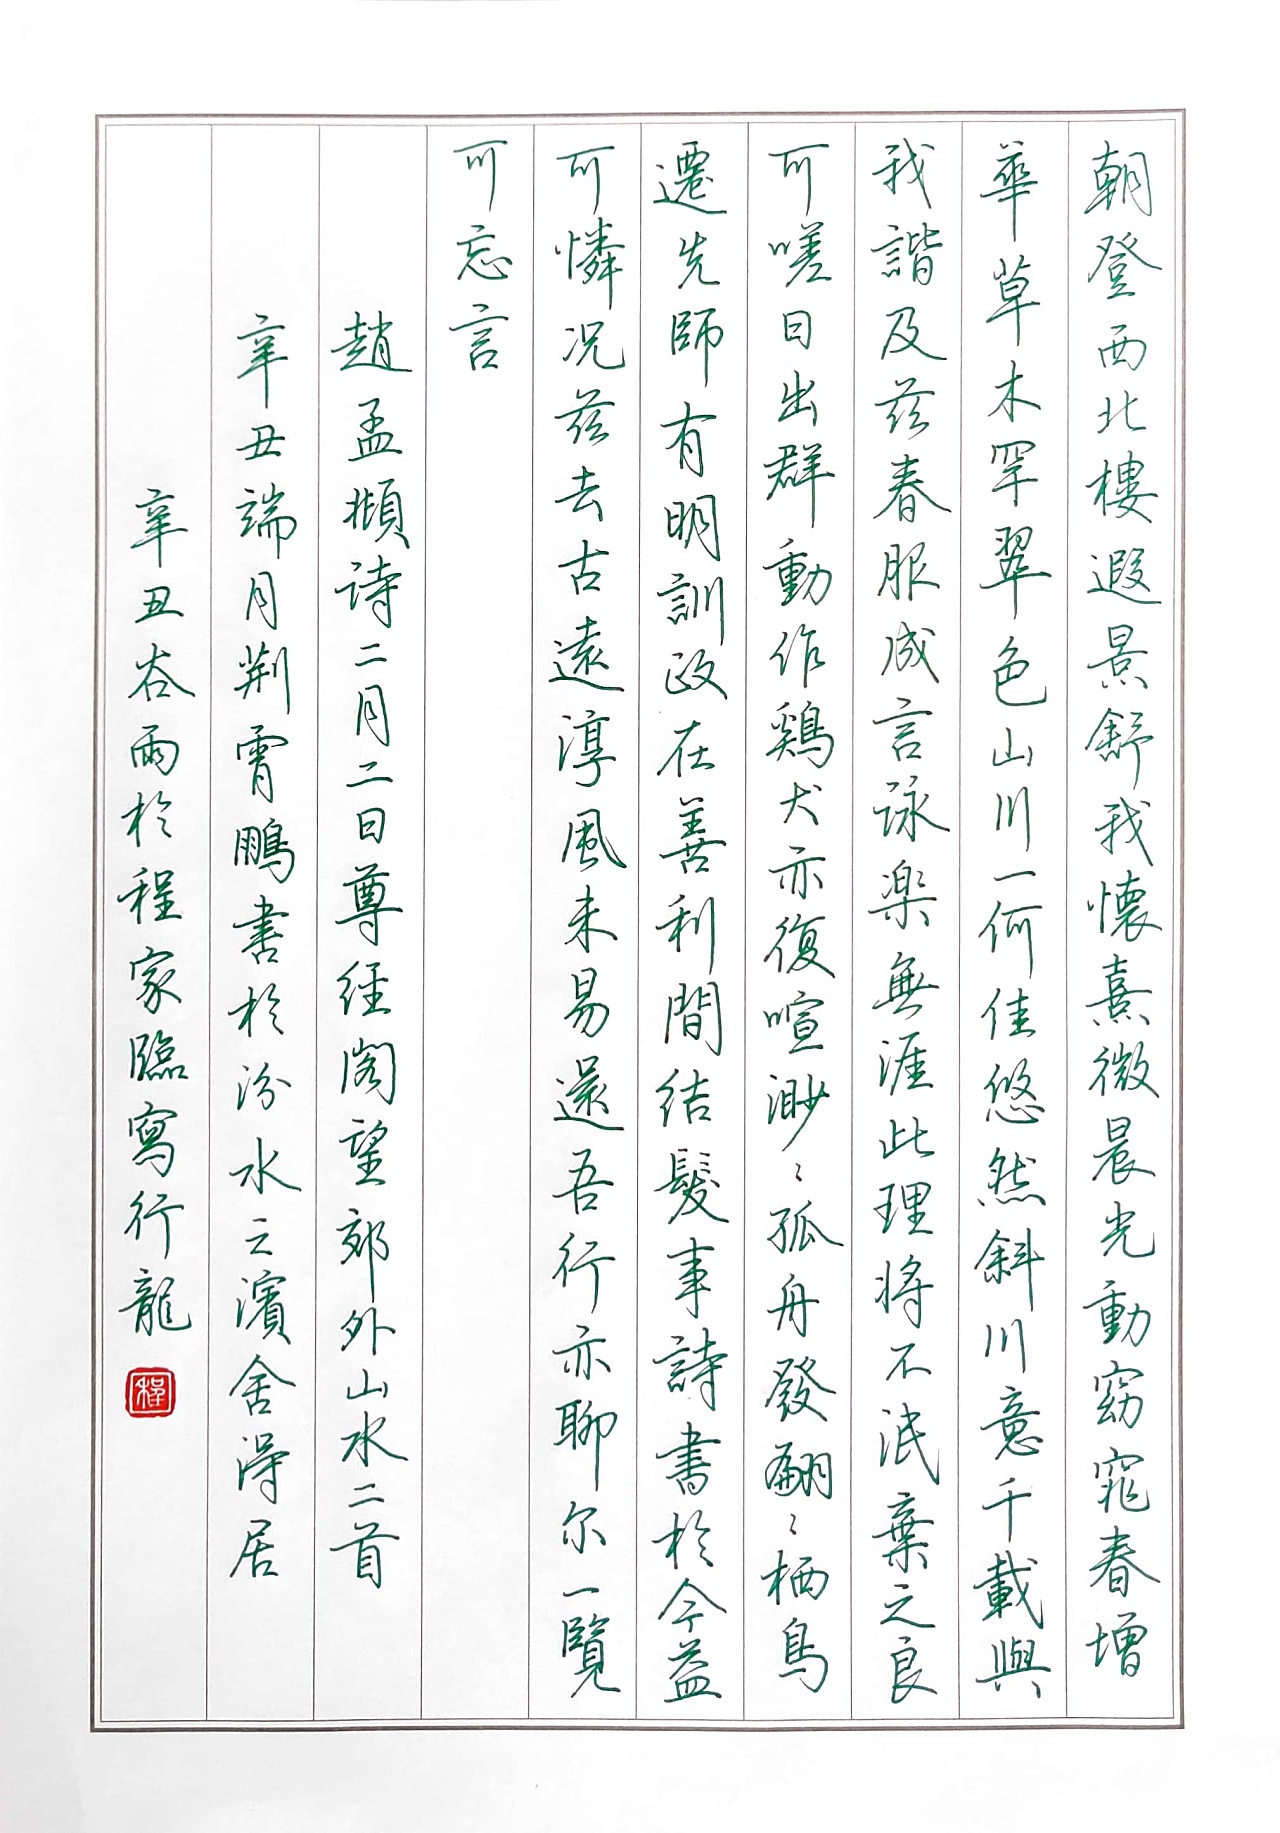 朝登西北樓遐景舒我懷熹微晨光動窈窕春增
華草木罕翠色山川一何佳悠然斜川意千載與
我諧及茲春服成言詠楽無涯此理将不泯棄之良
可嗟日出群動作鶏犬亦復喧渺〻孤舟發翩〻栖鳥
遷先師有明訓政在善利間結髮事詩書於今益
可憐况茲去古遠淳風未易還吾行亦聊尔一覽
可忘言
趙孟頫诗二月二日尊経閣望郊外山水二首
辛丑端月荆霄鵬書於汾水之濱舍得居
辛丑谷雨於程家臨寫行龍
程